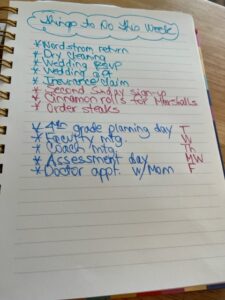 Things to Do This Week
* Nordstrom return
* Dry cleaning
* Wedding rsvp
* Wedding gift
* Insurance claim
* Second Sunday sign-up
* Cinnamon rolls for Marshalls
* Order steaks
* 4th grade planning day T
* Faculty mtg. W
* Coach mtg. Th
* Assessment day MW
* Doctor appt. w/Mom F